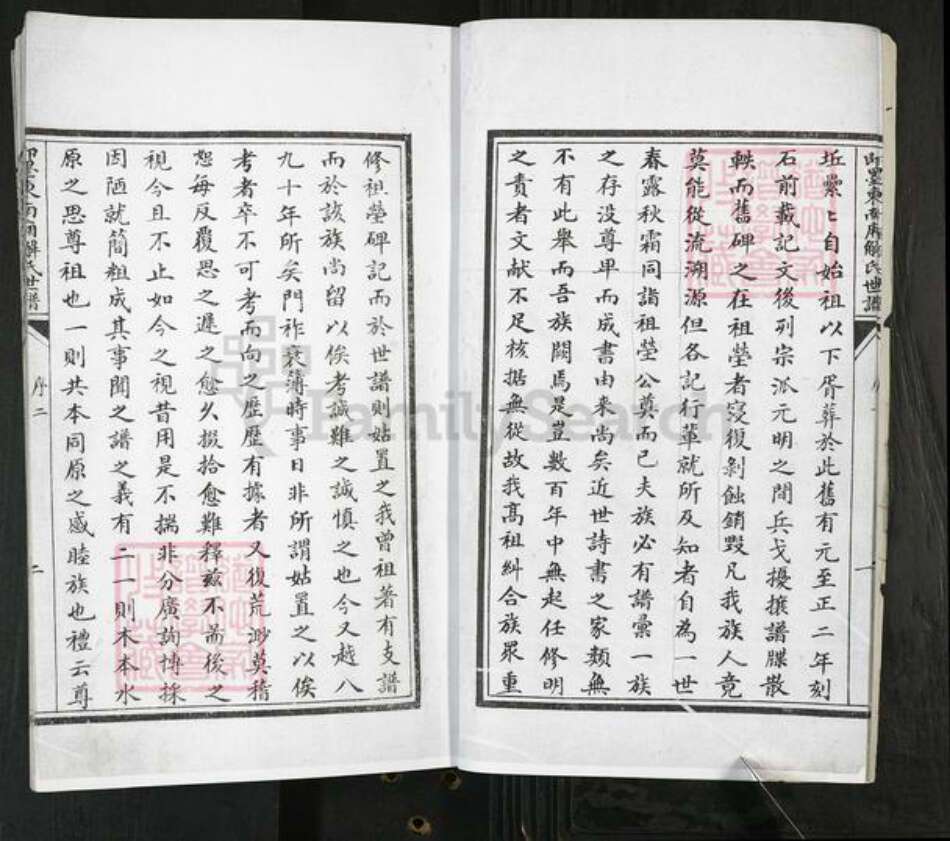 坵纍纍自始祖以下胥葬於此舊有元至正二年刻
石前載記文後列宗派元明之間兵戈擾攘譜牒散
軼而舊碑之在祖塋者寖復剝蝕銷毀凡我族人竟
莫能從流溯源但各記行輩就所及知者自為一世
春露秋霜同詣祖塋公奠而已夫族必有譜彙一族
之存没尊卑而成書由来尚矣近世詩書之家類無
不有此舉而吾族闕焉是豈數百年中無起任修明
之責者文献不足核据無從故我髙祖糾合族眾重
修祖塋碑記而於世譜則姑置之我曾祖著有支譜
而於該族尚留以俟考誠難之誠慎之也今又越八
九十年所矣門祚衰薄時事日非所謂姑置之以俟
考者卒不可考而向之歷歷有據者又復荒渺莫稽
恕每反覆思之遲之愈久掇拾愈難釋兹不啚後之
視今且不止如今之視昔用是不揣非分廣詢博採
因陋就簡粗成其事聞之譜之義有二一則木本水
原之思尊祖也一則共本同原之感睦族也禮云尊
序二
二
一
FamilySearch